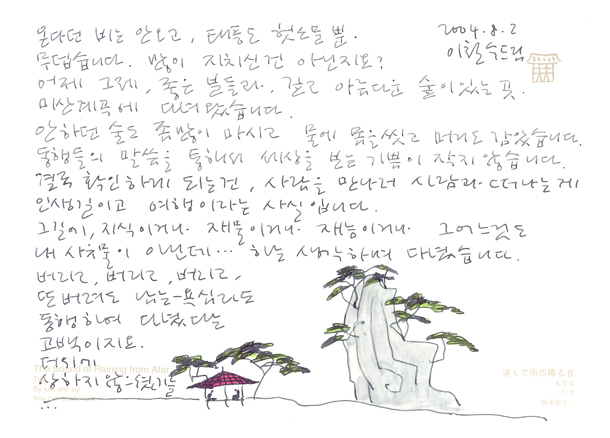 온다던 비는 안오고, 태풍도 헛소문 뿐.
무덥습니다. 많이 지치신건 아닌지요?
어제 그제, 좋은 벗들과, 깊고 아름다운 숲이있는 곳.
미산계곡에 다녀왔습니다.
안하던 술도 좀많이 마시고 물에 몸을씻고 머리도 감았습니다.
동행들의 말씀을 통해서 세상을 보는 기쁨이 작지 않습니다.
결국 확인하게 되는건, 사람을 만나러 사람과 떠나는게
인생길이고 여행이라는 사실입니다.
그길에, 지식이거나 재물이거나 재능이거나 그어느것도
내 사유물이 아닌데... 하는 생각하며 다녔습니다.
버리고, 버리고, 버리고,
또 버려도 남는 욕심과도
동행하여 다녔다는
고백이지요.
더위에
상하지 않으셨기를
...
2004.8.2
이철수드림
The Sound of Raining from Afar
遠くで雨の降る音